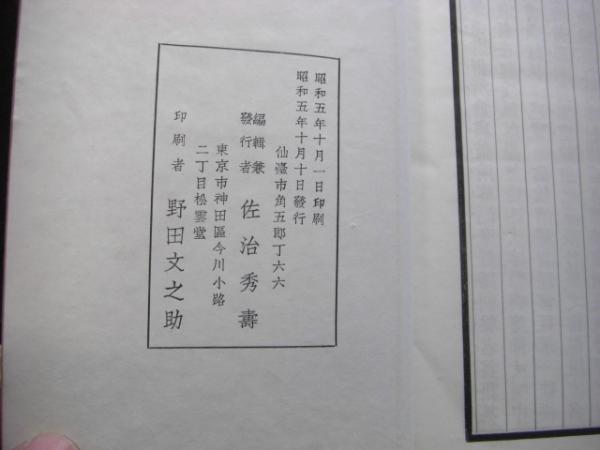 昭和五年十月一日印刷
昭和五年十月十日發行
仙臺市角五郎丁六六
編輯兼
發行者 佐治秀壽
東京市神田區今川小路
二丁目松雲堂
印刷者 野田文之助